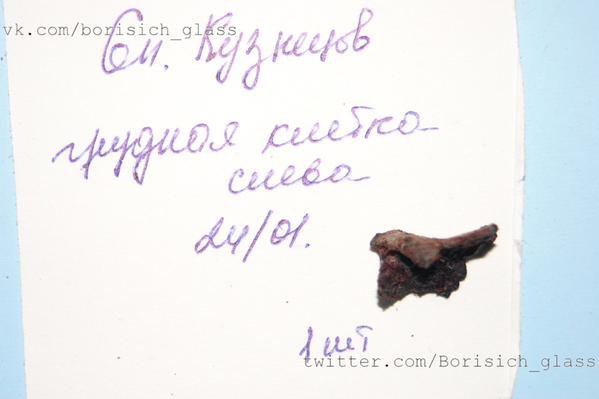 vk.com/borisich_glass
См. Кузнецов
грудная клетка
слева
24/01.
1 шт
twitter.com/Borisich_glass